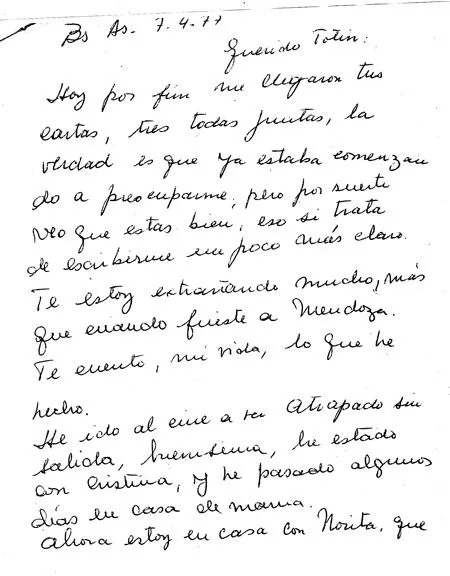 Bs As. 7.4.77
Querido Totin:
Hoy por fin me llegaron tus
cartas, tres todas juntas, la
verdad es que ya estaba comenzan
do a preocuparme, pero por suerte
veo que estas bien, eso si trata
de escribirme un poco más claro.
Te estoy extrañando mucho, más
que cuando fuiste a Mendoza.
Te cuento, mi vida, lo que he
hecho.
He ido al cine a ver Atrapado sin
salida, buenisima, he estado
con Cristina, y he pasado algunos
días en casa de mama.
Ahora estoy en casa con Norita, que